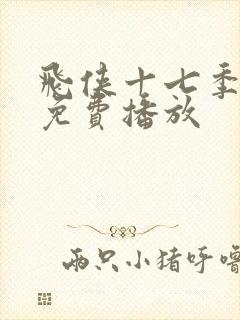 飛俠十七季
免費播放
兩只小猪呼嚕